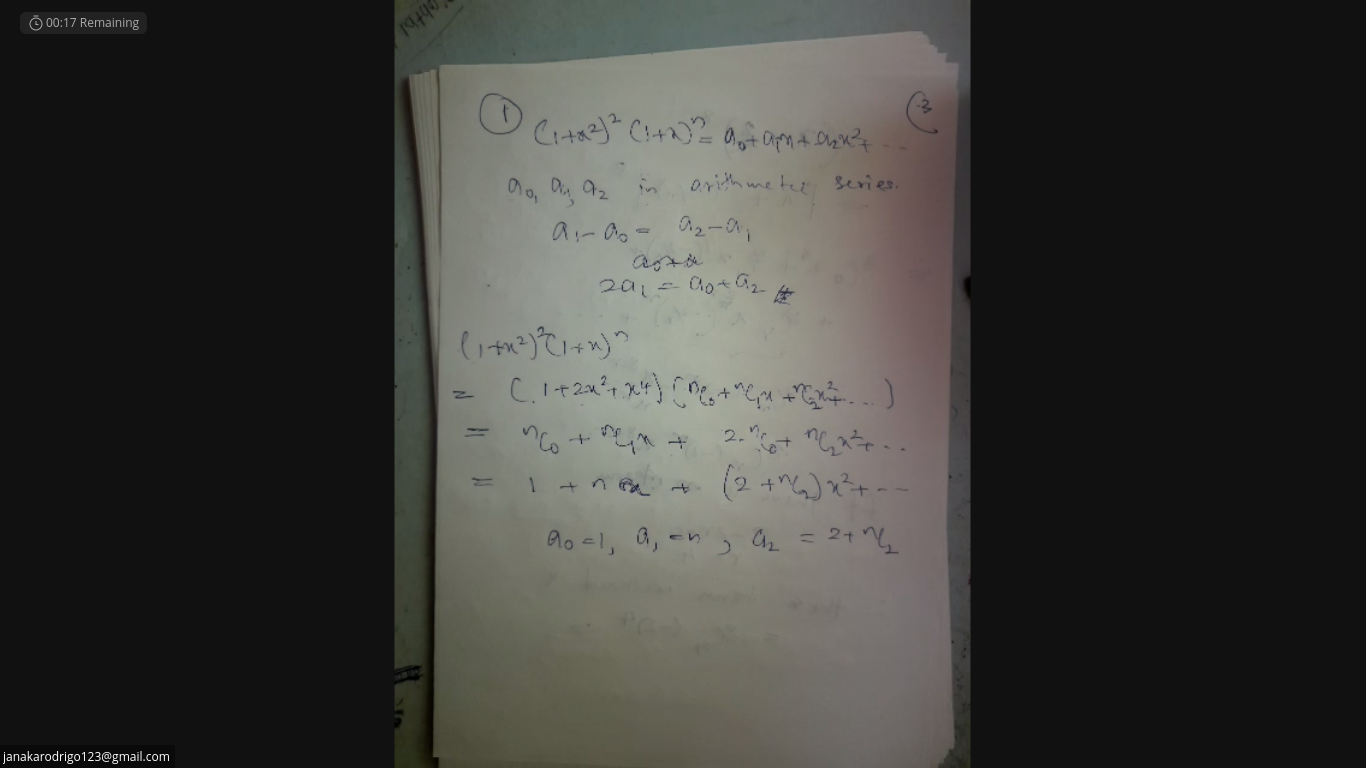 00:17 Remaining
① (1+x²)² (1+x)ⁿ = a₀+a₁x+a₂x²+ ...
3
a₀, a₁, a₂ in arithmetic series.
a₁ - a₀ = a₂ - a₁
2a₁ = a₀ + a₂
(1+x²)²(1+x)ⁿ
= (1+2x²+x4) (ⁿC₀ + ⁿC₁x + ⁿC₂x²+ ...)
= ⁿC₀ + ⁿC₁x + 2.ⁿC₀ + ⁿC₂x²+ ...
= 1 + n x + (2 + ⁿC₂) x² + ---
a₀ = 1, a₁ = n , a₂ = 2 + ⁿC₂
janakarodrigo123@gmail.com